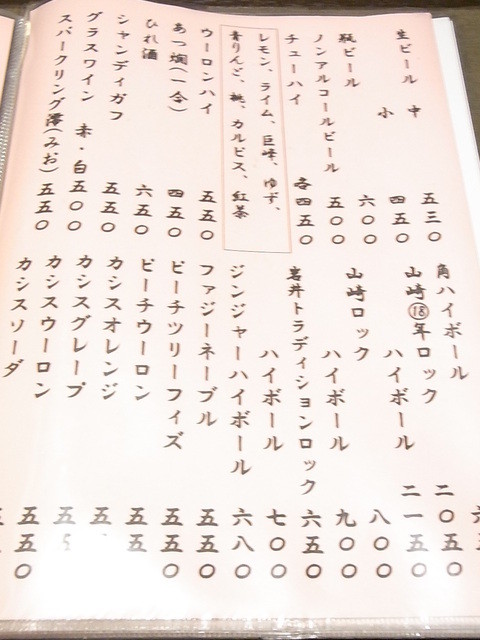 生ビール 中 五三〇
小 四五〇
瓶ビール 六〇〇
ノンアルコールビール 五〇〇
チューハイ 各四五〇
レモン、ライム、巨峰、ゆず、
青りんご、桃、カルピス、紅茶
ウーロンハイ 五五〇
あつ燗(一合) 四五〇
ひれ酒 六五〇
シャンディガフ 五五〇
グラスワイン 赤・白 五〇〇
スパークリング澪(みお) 五五〇
角ハイボール 六
山崎⑱年ロック 二〇五〇
ハイボール 二一五〇
山崎ロック 八〇〇
ハイボール 九〇〇
岩井トラディションロック 六五〇
ハイボール 七〇〇
ジンジャーハイボール 六八〇
ファジーネーブル 五五〇
ピーチツリーフィズ 五五〇
ピーチウーロン 五五
カシスオレンジ 五
カシスグレープ 五
カシスウーロン 五五〇
カシスソーダ